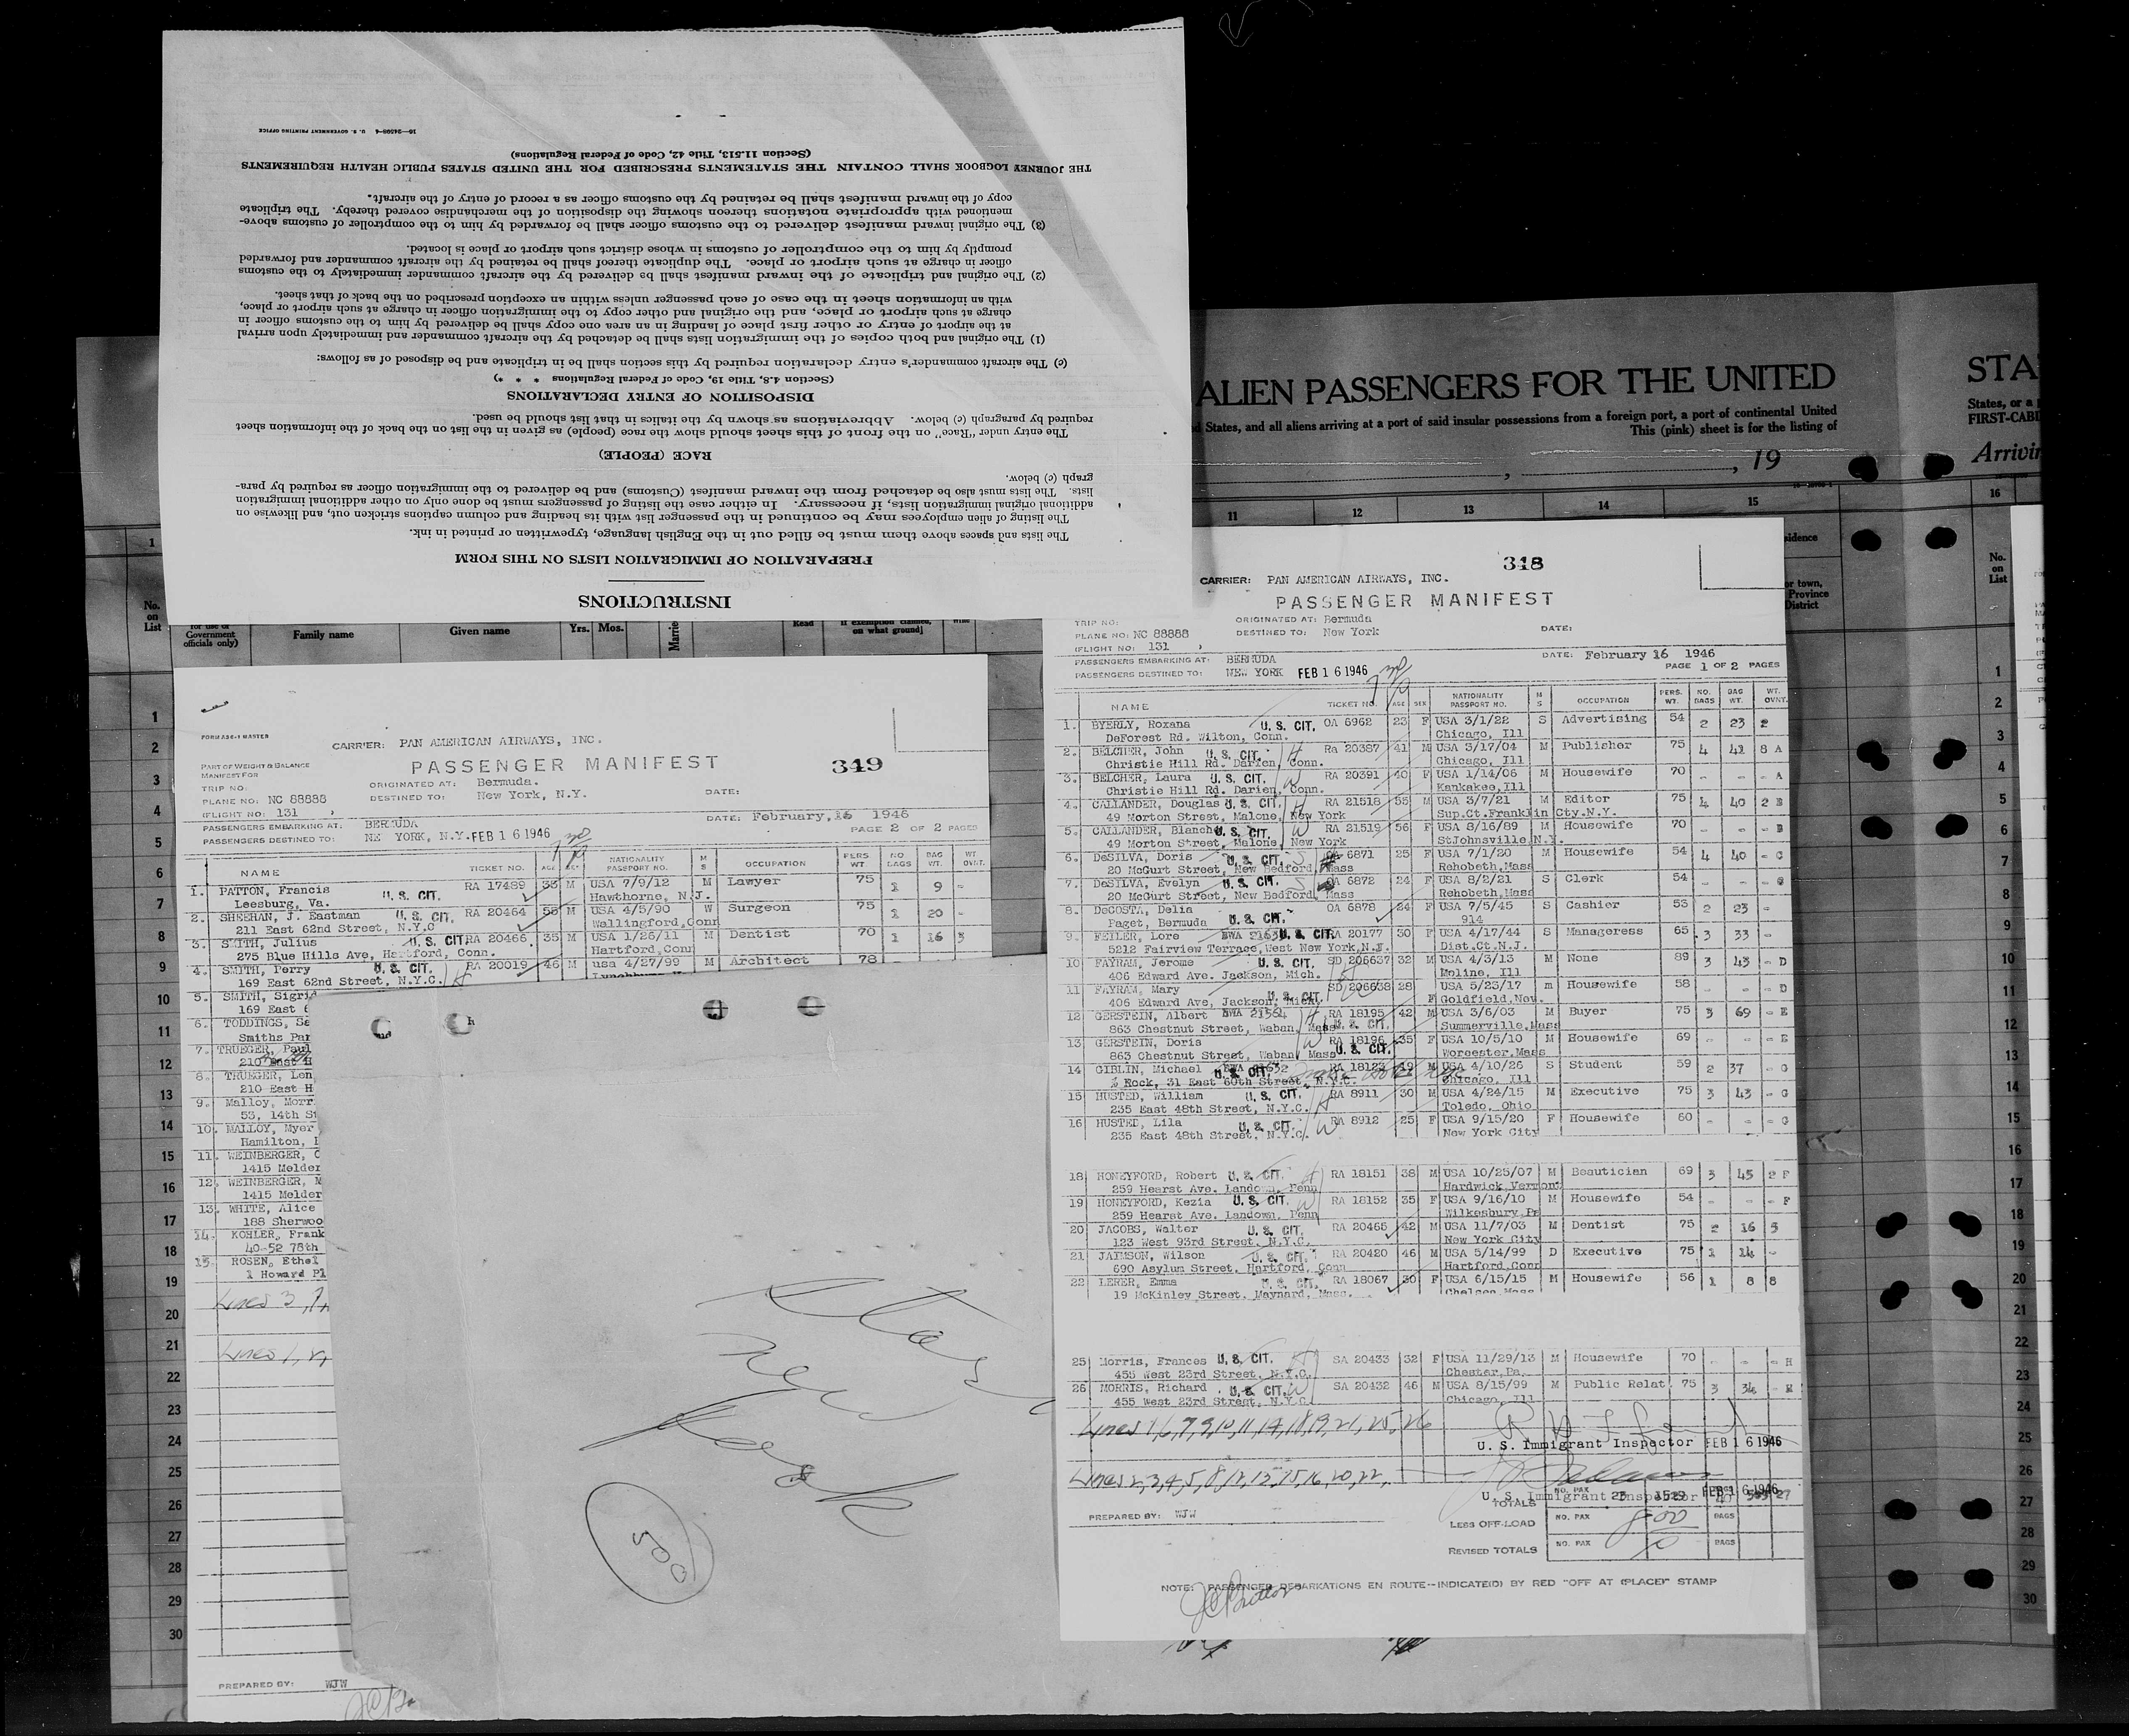 INSTRUCTIONS
PREPARATION OF IMMIGRATION LISTS ON THIS FORM
The lists and spaces above them must be filled out in the English language, typewritten or printed in ink.
The listing of alien employees may be continued in the passenger list with its heading and column captions stricken out, and likewise on
additional original immigration lists, if necessary. In either case the listing of passengers must be done only on other additional immigration
lists. The lists must also be detached from the inward manifest (Customs) and be delivered to the immigration officer as required by para-
graph (c) below.
RACE (PEOPLE)
The entry under "Race" on the front of this sheet should show the race (people) as given in the list on the back of the information sheet
required by paragraph (c) below. Abbreviations as shown by the italics in that list should be used.
DISPOSITION OF ENTRY DECLARATIONS
(Section 4.8, Title 19, Code of Federal Regulations * * *)
(c) The aircraft commander's entry declaration required by this section shall be in triplicate and be disposed of as follows:
(1) The original and both copies of the immigration lists shall be detached by the aircraft commander and immediately upon arrival
at the airport of entry or other first place of landing in an area one copy shall be delivered by him to the customs officer in
charge at such airport or place, and the original and other copy to the immigration officer in charge at such airport or place,
with an information sheet in the case of each passenger unless within an exception prescribed on the back of that sheet.
(2) The original and triplicate of the inward manifest shall be delivered by the aircraft commander immediately to the customs
officer in charge at such airport or place. The duplicate thereof shall be retained by the aircraft commander and forwarded
promptly by him to the comptroller of customs in whose district such airport or place is located.
(3) The original inward manifest delivered to the customs officer shall be forwarded by him to the comptroller of customs above-
mentioned with appropriate notations thereon showing the disposition of the merchandise covered thereby. The triplicate
copy of the inward manifest shall be retained by the customs officer as a record of entry of the aircraft.
THE JOURNEY LOGBOOK SHALL CONTAIN THE STATEMENTS PRESCRIBED FOR THE UNITED STATES PUBLIC HEALTH REQUIREMENTS
(Section 11.513, Title 42, Code of Federal Regulations)
16—24598-4 U. S. GOVERNMENT PRINTING OFFICE
ALIEN PASSENGERS FOR THE UNITED
STA
States, and all aliens arriving at a port of said insular possessions from a foreign port, a port of continental United
States, or a
This (pink) sheet is for the listing of
FIRST-CABI
, 19
Arrivin
11 12 13 14 15 16
No. on List
Government officials only)
Family name
Given name
Yrs. Mos.
Read
on what ground]
sidence
or town,
Province
District
No. on List
FORM A36-1 MASTER
CARRIER: PAN AMERICAN AIRWAYS, INC.
PASSENGER MANIFEST 349
PART OF WEIGHT & BALANCE
MANIFEST FOR
TRIP NO.
ORIGINATED AT: Bermuda.
PLANE NO: NC 88888 DESTINED TO: New York, N.Y. DATE:
(FLIGHT NO: 131 )
PASSENGERS EMBARKING AT: BERMUDA DATE: February, 16 1946
PASSENGERS DESTINED TO: NE YORK, N.Y. FEB 16 1946 PAGE 2 OF 2 PAGES
NAME TICKET NO. AGE SEX NATIONALITY PASSPORT NO. M S OCCUPATION PERS WT NO BAGS BAG WT. WT OVNT.
1. PATTON, Francis U. S. CIT. RA 17489 33 M USA 7/9/12 M Lawyer 75 1 9 -
Leesburg, Va. Hawthorne, N.J.
2. SHEEHAN, J. Eastman U. S. CIT. RA 20464 55 M USA 4/5/90 W Surgeon 75 1 20 -
211 East 62nd Street, N.Y.C Wallingford,Conn
3. SMITH, Julius U. S. CIT. RA 20466 35 M USA 1/26/11 M Dentist 70 1 16 3
275 Blue Hills Ave, Hartford, Conn. Hartford,Conn
4. SMITH, Perry U. S. CIT. RA 20019 46 M usa 4/27/99 M Architect 78
169 East 62nd Street, N.Y.C. H
5. SMITH, Sigrid
169 East 6
6. TODDINGS, Se
Smiths Par
7. TRUEGER, Paul
210 East H
8. TRUEGER, Len
210 East H
9. Malloy, Morr
53, 14th St
10. MALLOY, Myer
Hamilton, B
11. WEINBERGER, C
1415 Melder
12. WEINBERGER, M
1415 Melder
13. WHITE, Alice
188 Sherwoo
14. KOHLER, Frank
40-52 78th
15. ROSEN, Ethel
1 Howard Pl
Lines 3, 7,
Lines 1, 2,
PREPARED BY: WJW
New
500
318
CARRIER: PAN AMERICAN AIRWAYS, INC.
PASSENGER MANIFEST
TRIP NO: ORIGINATED AT: Bermuda
PLANE NO: NC 88888 DESTINED TO: New York DATE:
(FLIGHT NO: 131 )
PASSENGERS EMBARKING AT: BERMUDA DATE: February 16 1946
PASSENGERS DESTINED TO: NEW YORK FEB 16 1946 PAGE 1 OF 2 PAGES
NAME TICKET NO. AGE SEX NATIONALITY PASSPORT NO. M S OCCUPATION PERS. WT. NO. BAGS BAG WT. WT. OVNT.
1. BYERLY, Roxana U. S. CIT. OA 6962 23 F USA 3/1/22 S Advertising 54 2 23 2
DeForest Rd. Wilton, Conn. Chicago, Ill
2. BELCHER, John U. S. CIT. H Ra 20387 41 M USA 3/17/04 M Publisher 75 4 42 8 A
Christie Hill Rd. Darien, Conn. Chicago, Ill
3. BELCHER, Laura U. S. CIT. W RA 20391 40 F USA 1/14/06 M Housewife 70 - - - A
Christie Hill Rd. Darien, Conn. Kankakee,Ill
4. CALLANDER, Douglas U. S. CIT. H RA 21518 55 M USA 3/7/21 M Editor 75 4 40 2 B
49 Morton Street, Malone, New York Sup.Ct.Franklin Cty.N.Y.
5. CALLANDER, Blanche U. S. CIT. W RA 21519 56 F USA 8/16/89 M Housewife 70 - - - B
49 Morton Street, Malone, New York StJohnsville,N.Y.
6. DeSILVA, Doris U. S. CIT. S OA 6871 25 F USA 7/1/20 M Housewife 54 4 40 - C
20 McGurt Street, New Bedford, Mass Rehobeth,Mass
7. DeSILVA, Evelyn U. S. CIT. S 6872 24 F USA 8/2/21 S Clerk 54 - - - C
20 McGurt Street, New Bedford, Mass Rehobeth,Mass
8. DeCOSTA, Delia OA 6878 24 F USA 7/5/45 S Cashier 53 2 23 -
Paget, Bermuda U. S. CIT. 914
9. FEILER, Lore U. S. CIT. RA 20177 30 F USA 4/17/44 S Manageress 65 3 33 -
5212 Fairview Terrace,West New York,N.J. Dist.Ct.N.J.
10 FAYRAM, Jerome U. S. CIT. SD 206637 32 M USA 4/3/13 M None 89 3 43 - D
406 Edward Ave. Jackson, Mich. H Moline, Ill
11 FAYRAM, Mary U. S. CIT. SD 206638 28 USA 5/23/17 m Housewife 58 - - - D
406 Edward Ave, Jackson, Mich. F Goldfield,Nev.
12 GERSTEIN, Albert H RA 18195 42 M USA 3/6/03 M Buyer 75 3 69 - E
863 Chestnut Street, Waban, Mass U. S. CIT. Summerville,Mass
13 GERSTEIN, Doris W RA 18196 35 F USA 10/5/10 M Housewife 69 - - - E
863 Chestnut Street, Waban, Mass U. S. CIT. Worcester,Mass
14 GIBLIN, Michael U. S. CIT. RA 18123 19 M USA 4/10/26 S Student 59 2 37 - G
% Rock, 31 East 60th Street, N.Y.C. Chicago, Ill
15 HUSTED, William U. S. CIT. RA 8911 30 M USA 4/24/15 M Executive 75 3 43 - G
235 East 48th Street, N.Y.C. H Toledo, Ohio
16 HUSTED, Lila U. S. CIT. W RA 8912 25 F USA 9/15/20 F Housewife 60 - - - G
235 East 48th Street, N.Y.C. New York City
18 HONEYFORD, Robert U. S. CIT. H RA 18151 38 M USA 10/25/07 M Beautician 69 3 45 2 F
259 Hearst Ave. Landown, Penn Hardwick,Vermont
19 HONEYFORD, Kezia U. S. CIT. W RA 18152 35 F USA 9/16/10 M Housewife 54 - - - F
259 Hearst Ave. Landown, Penn Wilkesbury,Pa
20 JACOBS, Walter U. S. CIT. RA 20465 42 M USA 11/7/03 M Dentist 75 2 16 5
123 West 93rd Street, N.Y.C. New York City
21 JAIMSON, Wilson U. S. CIT. RA 20420 46 M USA 5/14/99 D Executive 75 1 14 -
690 Asylum Street, Hartford, Conn Hartford,Conn
22 LERER, Emma U. S. CIT. RA 18067 30 F USA 6/15/15 M Housewife 56 1 8 8
19 McKinley Street, Maynard, Mass. Chelsea,Mass
25 Morris, Frances U. S. CIT. H SA 20433 32 F USA 11/29/13 M Housewife 70 - - - H
455 West 23rd Street, N.Y.C. Chester,Pa.
26 MORRIS, Richard U. S. CIT. W SA 20432 46 M USA 8/15/99 M Public Relat 75 3 34 - H
455 West 23rd Street, N.Y.C Chicago,Ill
Lines 1,6,7,9,10,11,14,18,19,21,25,26
U. S. Immigrant Inspector FEB 16 1946
Lines 2,3,4,5,8,12,13,15,16,20,22,
U. S. Immigrant Inspector FEB 16 1946
TOTALS NO. PAX 23 1529
PREPARED BY: WJW
LESS OFF-LOAD NO. PAX BAGS
REVISED TOTALS NO. PAX BAGS
NOTE: PASSENGER DEBARKATIONS EN ROUTE--INDICATE(D) BY RED "OFF AT (PLACE)" STAMP